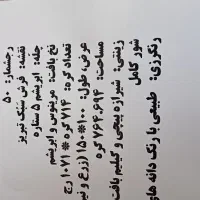 رجشمار: ۵۰
نقشه: فرش سبک تبریز
چله: ابریشم ۵ ستاره
نخ بافت: مرینوس و ابریشم
تعداد گره: ۷۱۴ گره * ۱۰۷۱ رج
عرض * طول: ۱۰۰*۱۵۰ (زرع و نیم
مساحت: ۷۶۴.۶۹۴ گره
زینتی: شیرازه پیچی و گلیم بافت
شور کامل
رنگرزی: طبیعی با رنگ دانه های